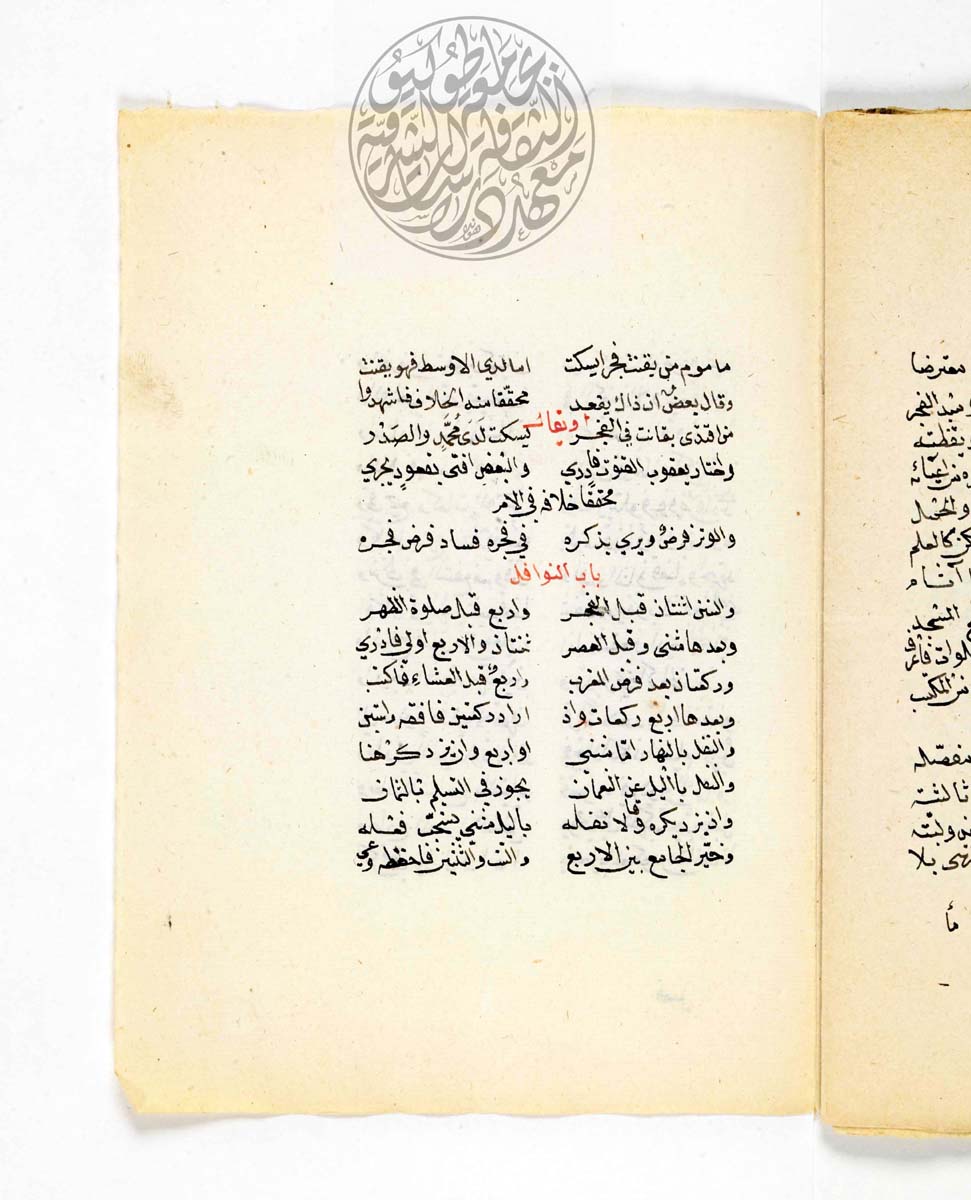 ماموم من يقنت فجرا يسكت اما لدي الاوسط فهو يقنت
وقال بعض ان ذاك يقعد محققا منه الخلاف فاشهدوا
او يقال
من اقتدى بقانت في الفجر يسكت لدى محمد والصدر
واختار يعقوب القنوت فادري والبعض افتى بقعود يجري
محققا خلافه في الامر
والوتر فرض ويري بذكره في فجره فساد فرض فجره
باب النوافل
والسنن اثنتان قبل الفجر واربع قبل صلوة الظهر
وبعدها مثنى وقبل العصر ثنتان والاربع اولى فادري
وركعتان بعد فرض المغرب واربع قبل العشاء فاكتب
وبعدها اربع ركعات واذ اراد ركعتين فافقه
والنفل بالنهار اما مثنى او اربع وان يزد كرهنا
والنفل بالليل عن النعمان يجوز في التسليم بالثمان
وان يزد يكره وقالا نفله بالليل مثنى يستحب فعله
وخير الجامع بين الاربع والست والثنتين فاحفظه وعي
معترضا
الفجر
كالعلم
المسجد
ثالثة
بلا